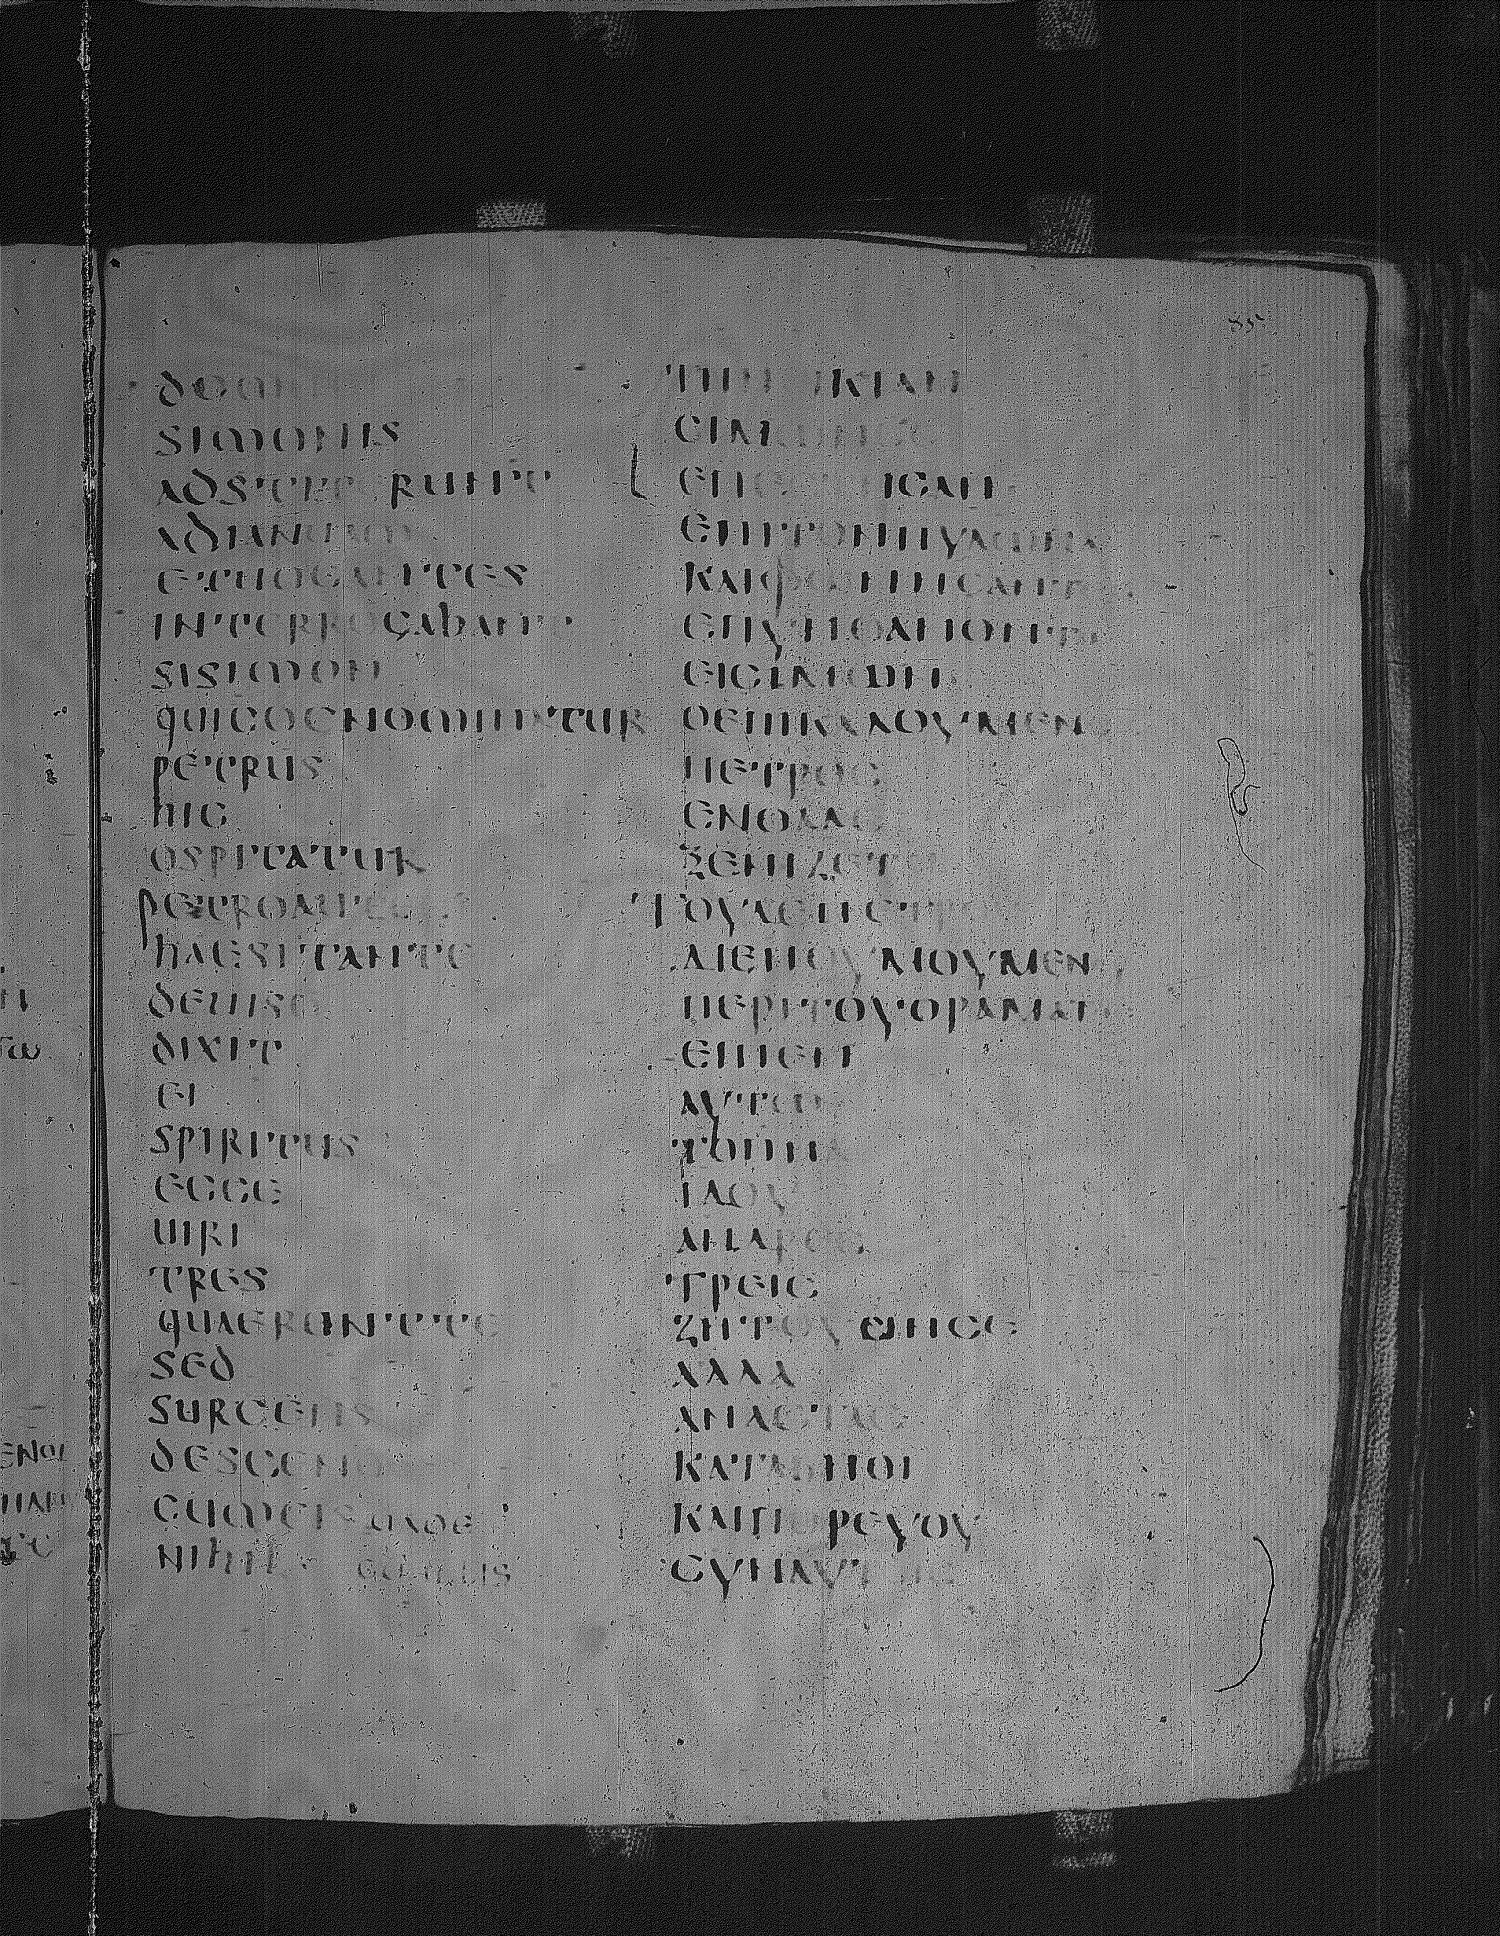 85
SIMONIS
ADSTETERUNT
ADIANUAM
ETUOCANTES
INTERROGABANT
SISIMON
QUICOGNOMINATUR
PETRUS
HIC
OSPITATUR
PETROAUTEM
HAESITANTE
DEUISO
DIXIT
EI
SPIRITUS
ECCE
UIRI
TRES
QUAERUNTTE
SED
SURGENS
DESCENDE
NIHIL
ΤΗΝ ΟΙΚΙΑΝ
ΕΠΕΣΤΗΣΑΝ
ΕΠΙΤΟΝΠΥΛΩΝΑ
ΚΑΙΦΩΝΗΣΑΝΤΕΣ
ΕΠΥΝΘΑΝΟΝΤΟ
ΕΙCΙΜΩΝ
ΟΕΠΙΚΑΛΟΥΜΕΝΟC
ΠΕΤΡΟC
ΕΝΘΑΔΕ
ΞΕΝΙΖΕΤΑΙ
ΤΟΥΔΕΠΕΤΡΟΥ
ΔΙΕΝΘΥΜΟΥΜΕΝΟΥ
ΠΕΡΙΤΟΥΟΡΑΜΑΤΟC
ΕΙΠΕΝ
ΑΥΤΩ
ΤΟΠΝΑ
ΙΔΟΥ
ΑΝΔΡΕC
ΤΡΕΙC
ΖΗΤΟΥCΙΝCΕ
ΑΛΛΑ
ΑΝΑCΤΑC
ΚΑΤΑΒΗΘΙ
ΚΑΙΠΟΡΕΥΟΥ
CΥΝΑΥΤΟΙC